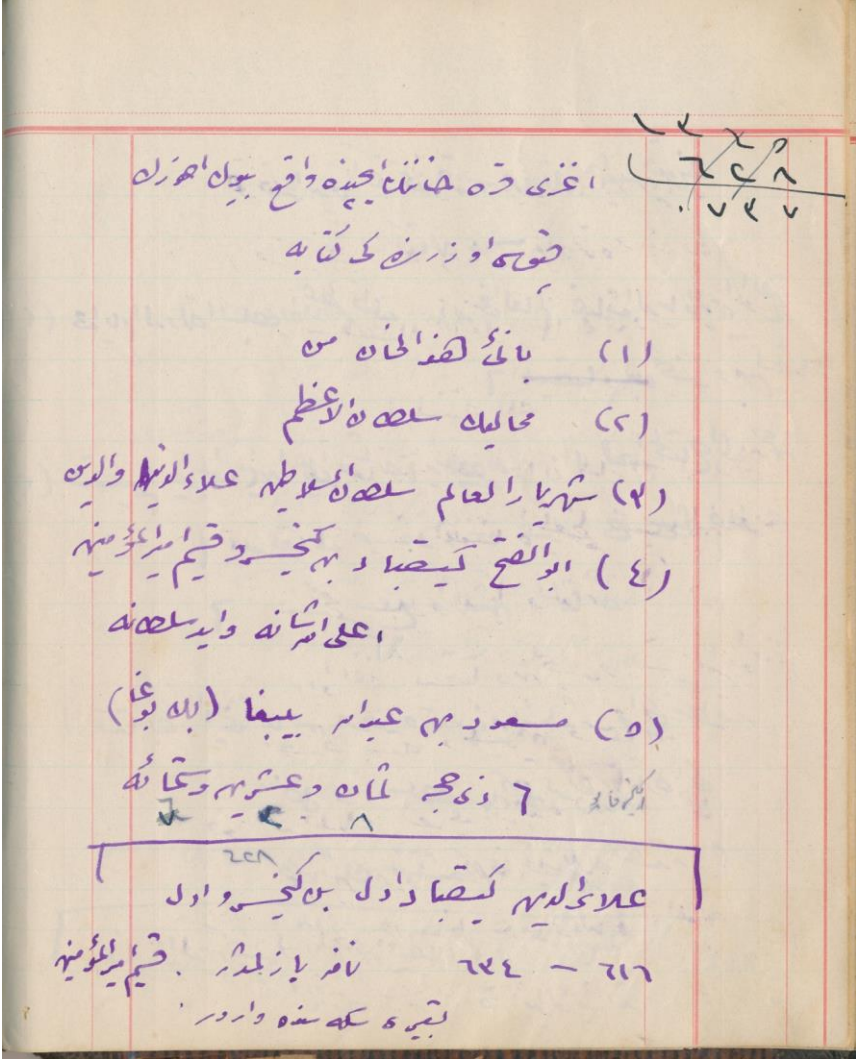 ١٣٦٥
٦٢٨
٠٧٣٧
اغزی قره خاننك ایچنده واقع بیوك اهورك
قپوسی اوزرنده كی كتابه
(١) بانئ هذا الخان من
(٢) ممالیك سلطان الاعظم
(٣) شهریار العالم سلطان السلاطین علاء الدنیا والدین
(٤) ابو الفتح كیقباد بن كیخسرو قسیم امیر المؤمنین
اعلی الله شانه واید سلطانه
(٥) مسعود بن عبدالله یلبغا (بك بوغا)
٦ ذی حجه ثمان وعشرین وستمائه
٦ ٢ ٨
٦٢٨
علاء الدین كیقباد اول بن كیخسرو اول
٦١٦ — ٦٣٤ قسیم امیر المؤمنین
سكه سنده واردر